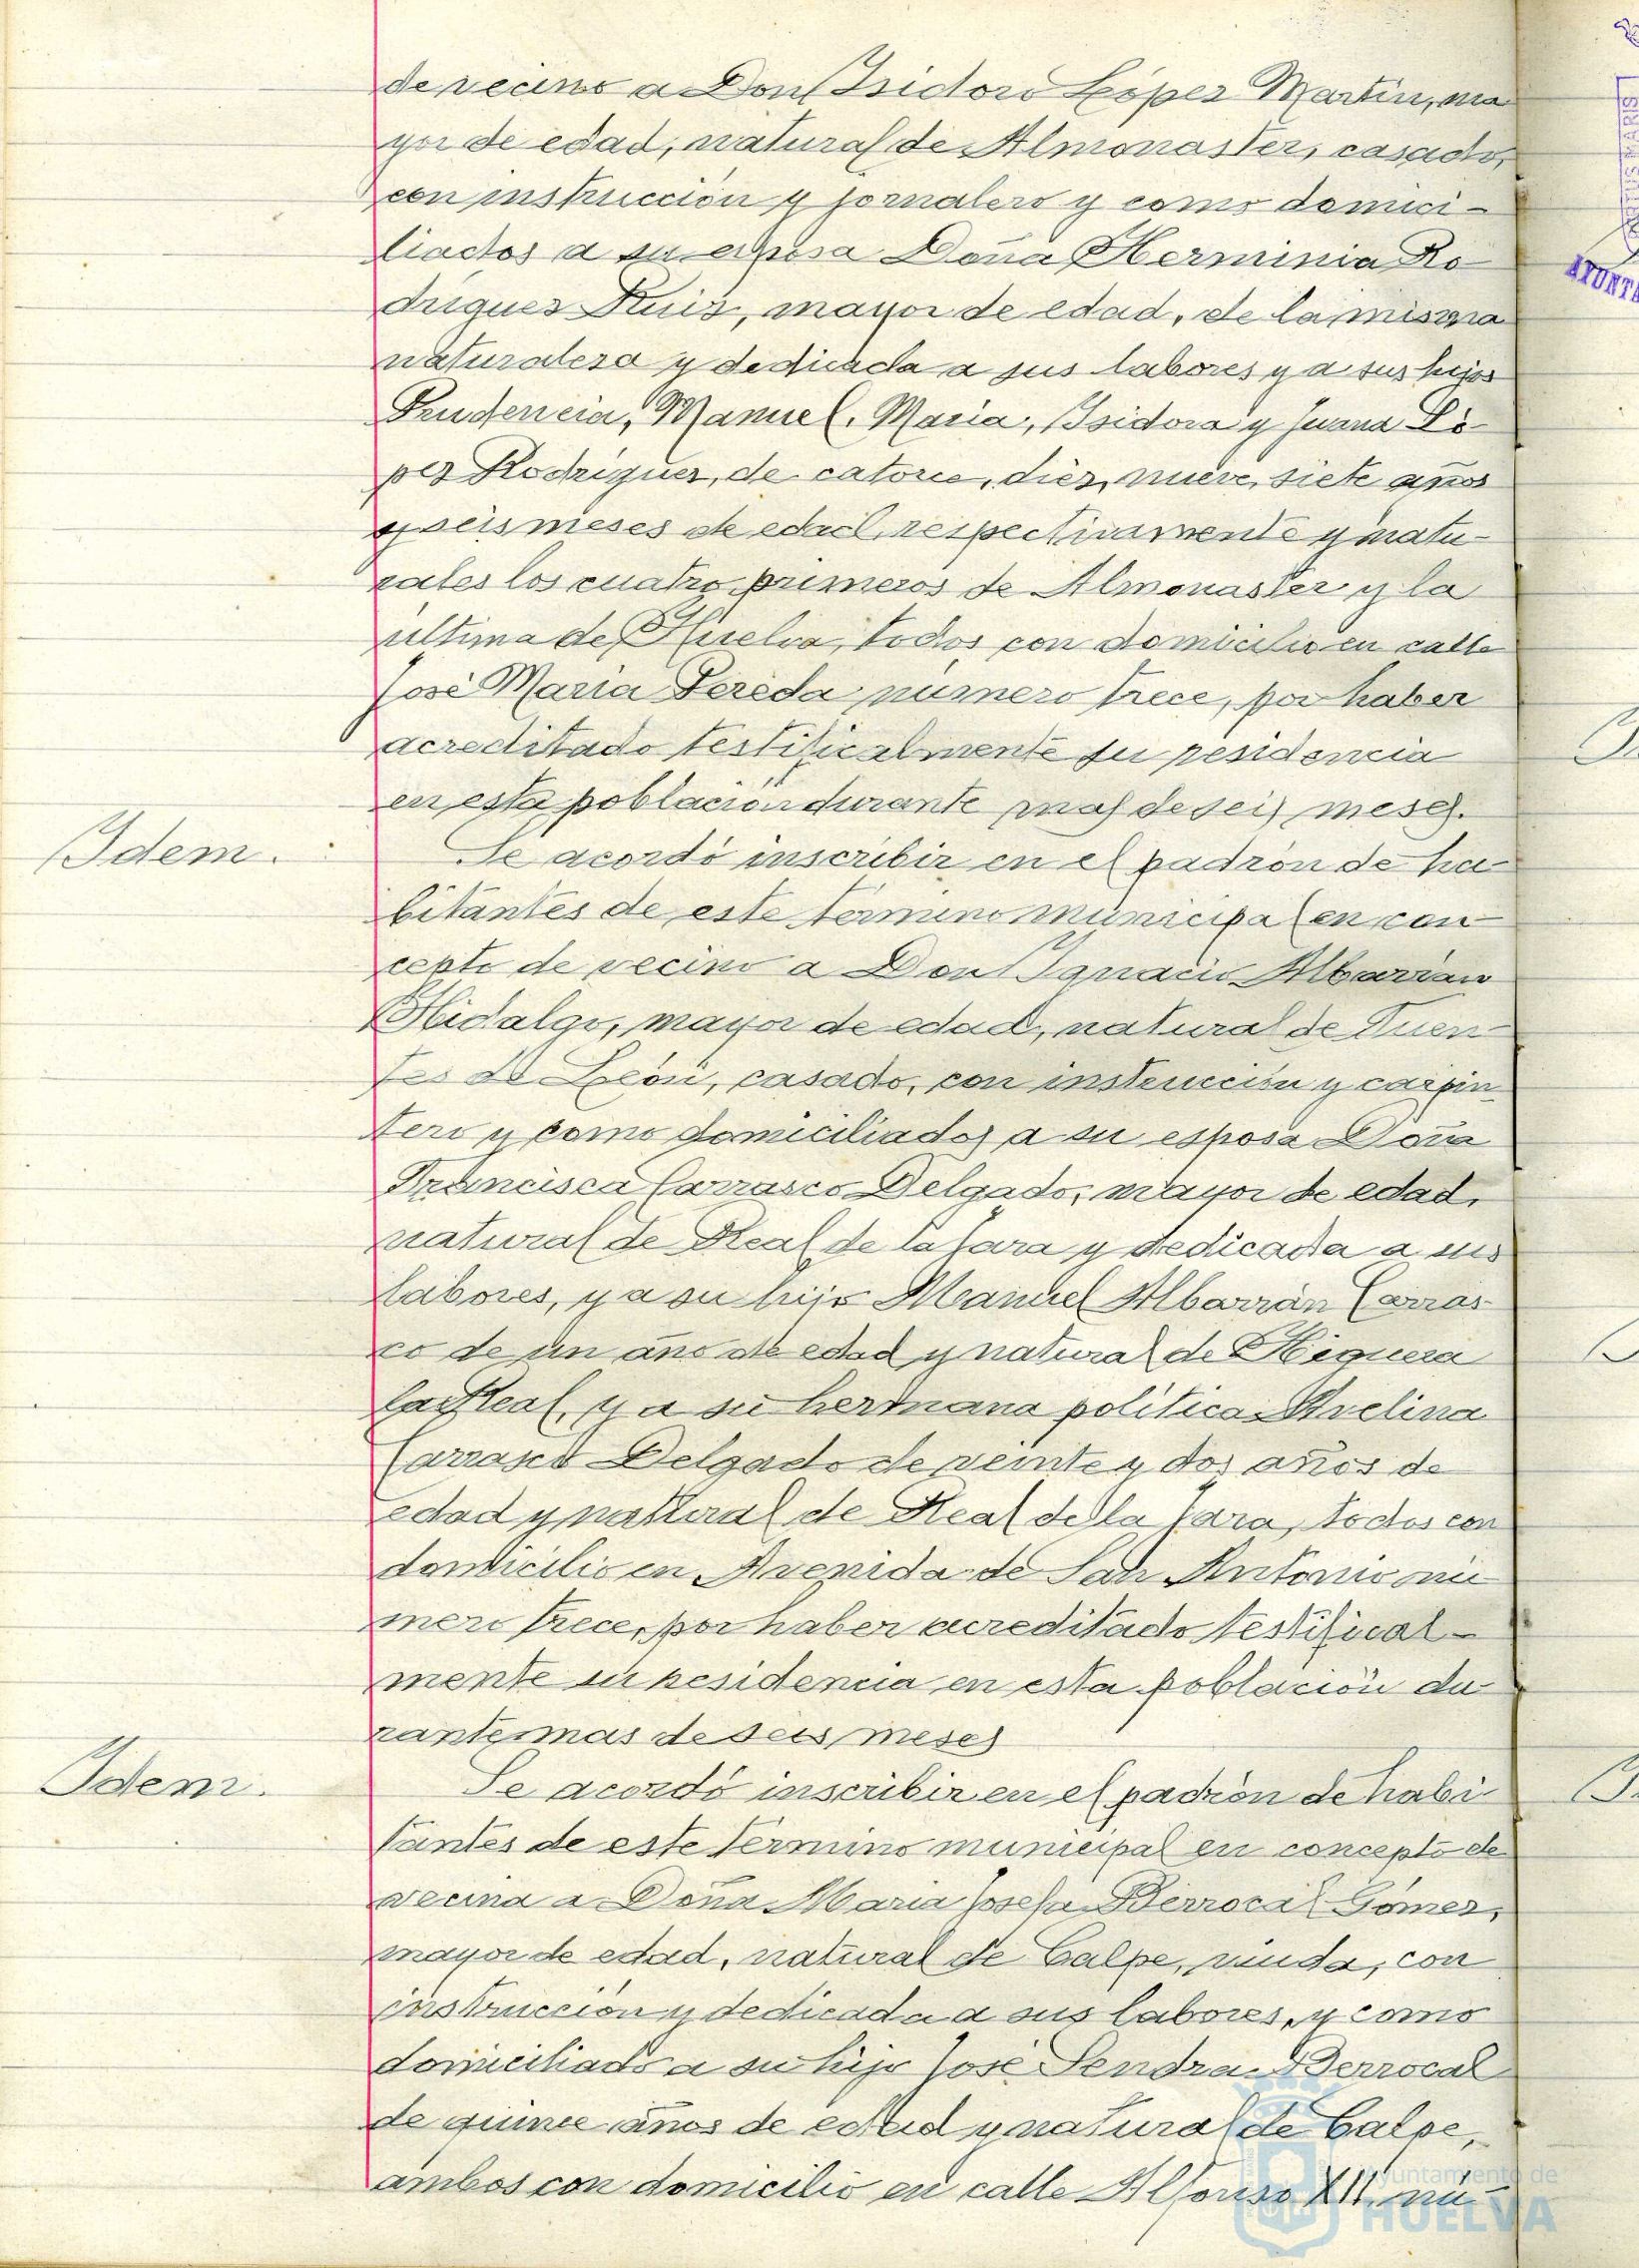 de vecino a Don Isidoro López Martín, ma
yor de edad, natural de Almonaster, casado,
con instrucción y jornalero y como domici-
liados a su esposa Doña Herminia Ro
driguez Ruiz, mayor de edad, de la misma
naturaleza y dedicada a sus labores y a sus hijos
Prudencia, Manuel, Maria, Isidora y Juana Ló-
pez Rodriguez, de catorce, diez, nueve, siete años
y seis meses de edad, respectivamente y natu-
rales los cuatro primeros de Almonaster y la
última de Huelva, todos con domicilio en calle
José Maria Pereda número trece, por haber
acreditado testificalmente su residencia
en esta población durante mas de seis meses.
Idem.
Se acordó inscribir en el padrón de ha-
bitantes de este término municipal en con-
cepto de vecino a Don Ignacio Albarran
Hidalgo, mayor de edad, natural de Fuen-
tes de León, casado, con instrucción y carpin
tero y como domiciliados a su esposa Doña
Francisca Carrasco Delgado, mayor de edad,
natural de Real de la Jara y dedicada a sus
labores, y a su hijo Manuel Albarrán Carras-
co de un año de edad y natural de Higuera
la Real, y a su hermana política Avelina
Carrasco Delgado de veinte y dos años de
edad y natural de Real de la Jara, todos con
domicilio en Avenida de San Antonio nú
mero trece, por haber acreditado testifical-
mente su residencia en esta población du-
rante mas de seis meses
Idem.
Se acordó inscribir en el padrón de habi-
tantes de este término municipal en concepto de
vecina a Doña Maria Josefa Berrocal Gómez,
mayor de edad, natural de Calpe, viuda, con
instrucción y dedicada a sus labores, y como
domiciliado a su hijo José Sendra Berrocal
de quince años de edad y natural de Calpe,
ambos con domicilio en calle Alfonso XII, nú-
Ayuntamiento de
HUELVA